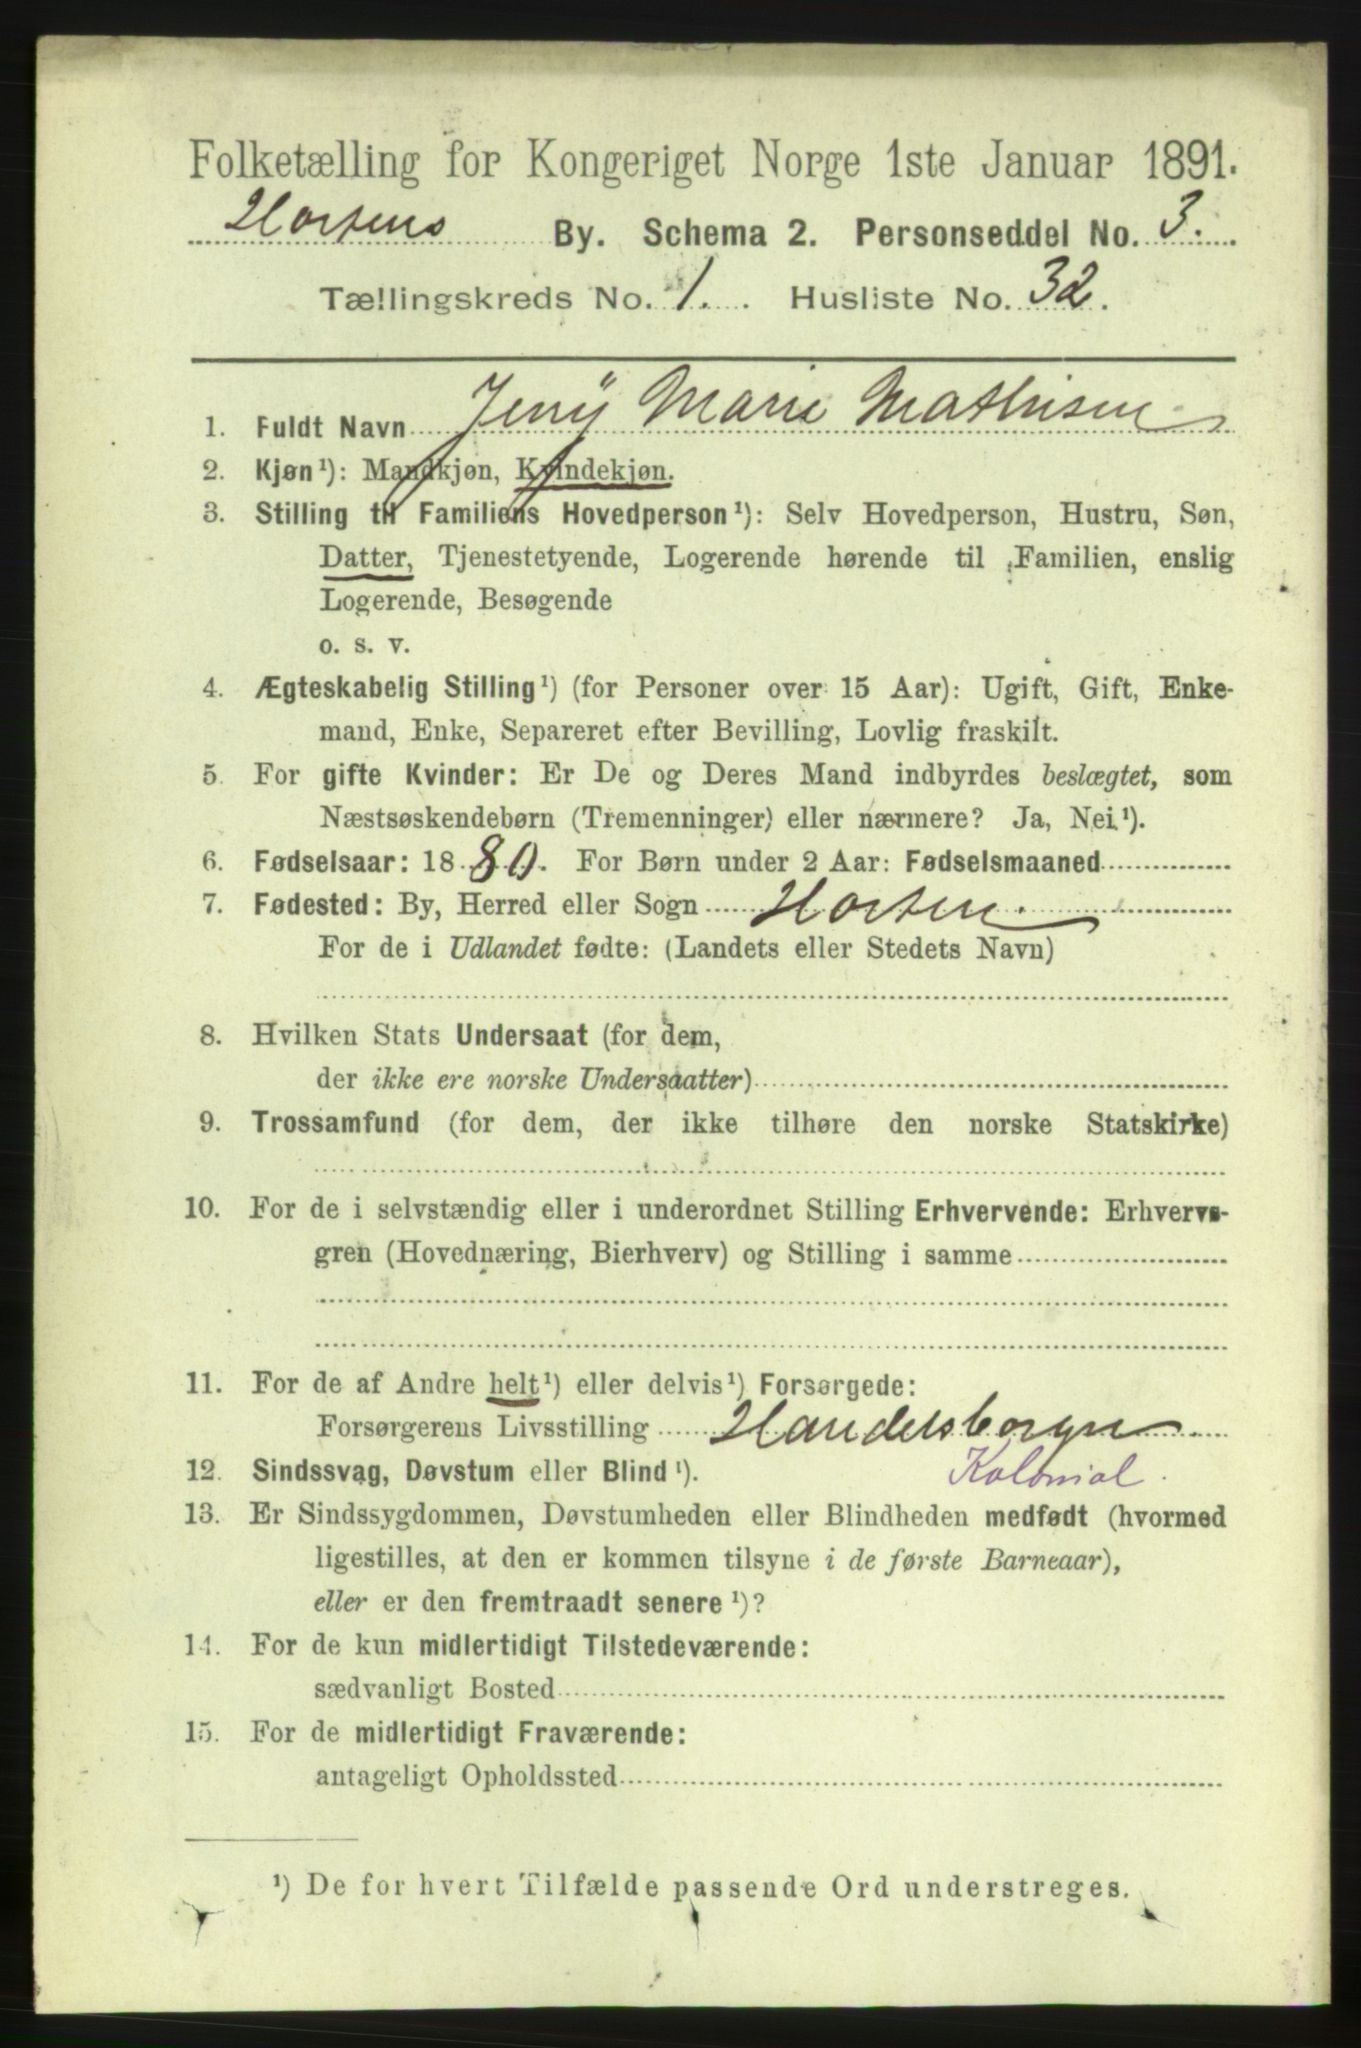 Folketælling for Kongeriget Norge 1ste Januar 1891.
Hortens By. Schema 2. Personseddel No. 3.
Tællingskreds No. 1. Husliste No. 32.
1. Fuldt Navn Jenny Marie Mathisen
2. Kjøn¹): Mandkjøn, Kvindekjøn.
3. Stilling til Familiens Hovedperson¹): Selv Hovedperson, Hustru, Søn,
Datter, Tjenestetyende, Logerende hørende til Familien, enslig
Logerende, Besøgende
o. s. v.
4. Ægteskabelig Stilling¹) (for Personer over 15 Aar): Ugift, Gift, Enke-
mand, Enke, Separeret efter Bevilling, Lovlig fraskilt.
5. For gifte Kvinder: Er De og Deres Mand indbyrdes beslægtet, som
Næstsøskendebørn (Tremenninger) eller nærmere? Ja, Nei¹).
6. Fødselsaar: 1880. For Børn under 2 Aar: Fødselsmaaned
7. Fødested: By, Herred eller Sogn Horten
For de i Udlandet fødte: (Landets eller Stedets Navn)
8. Hvilken Stats Undersaat (for dem,
der ikke ere norske Undersaatter)
9. Trossamfund (for dem, der ikke tilhøre den norske Statskirke)
10. For de i selvstændig eller i underordnet Stilling Erhvervende: Erhvervs-
gren (Hovednæring, Bierhverv) og Stilling i samme
11. For de af Andre helt¹) eller delvis¹) Forsørgede:
Forsørgerens Livsstilling Handelsborger
12. Sindssvag, Døvstum eller Blind¹). Kolonial.
13. Er Sindssygdommen, Døvstumheden eller Blindheden medfødt (hvormed
ligestilles, at den er kommen tilsyne i de første Barneaar),
eller er den fremtraadt senere¹)?
14. For de kun midlertidigt Tilstedeværende:
sædvanligt Bosted
15. For de midlertidigt Fraværende:
antageligt Opholdssted
¹) De for hvert Tilfælde passende Ord understreges.